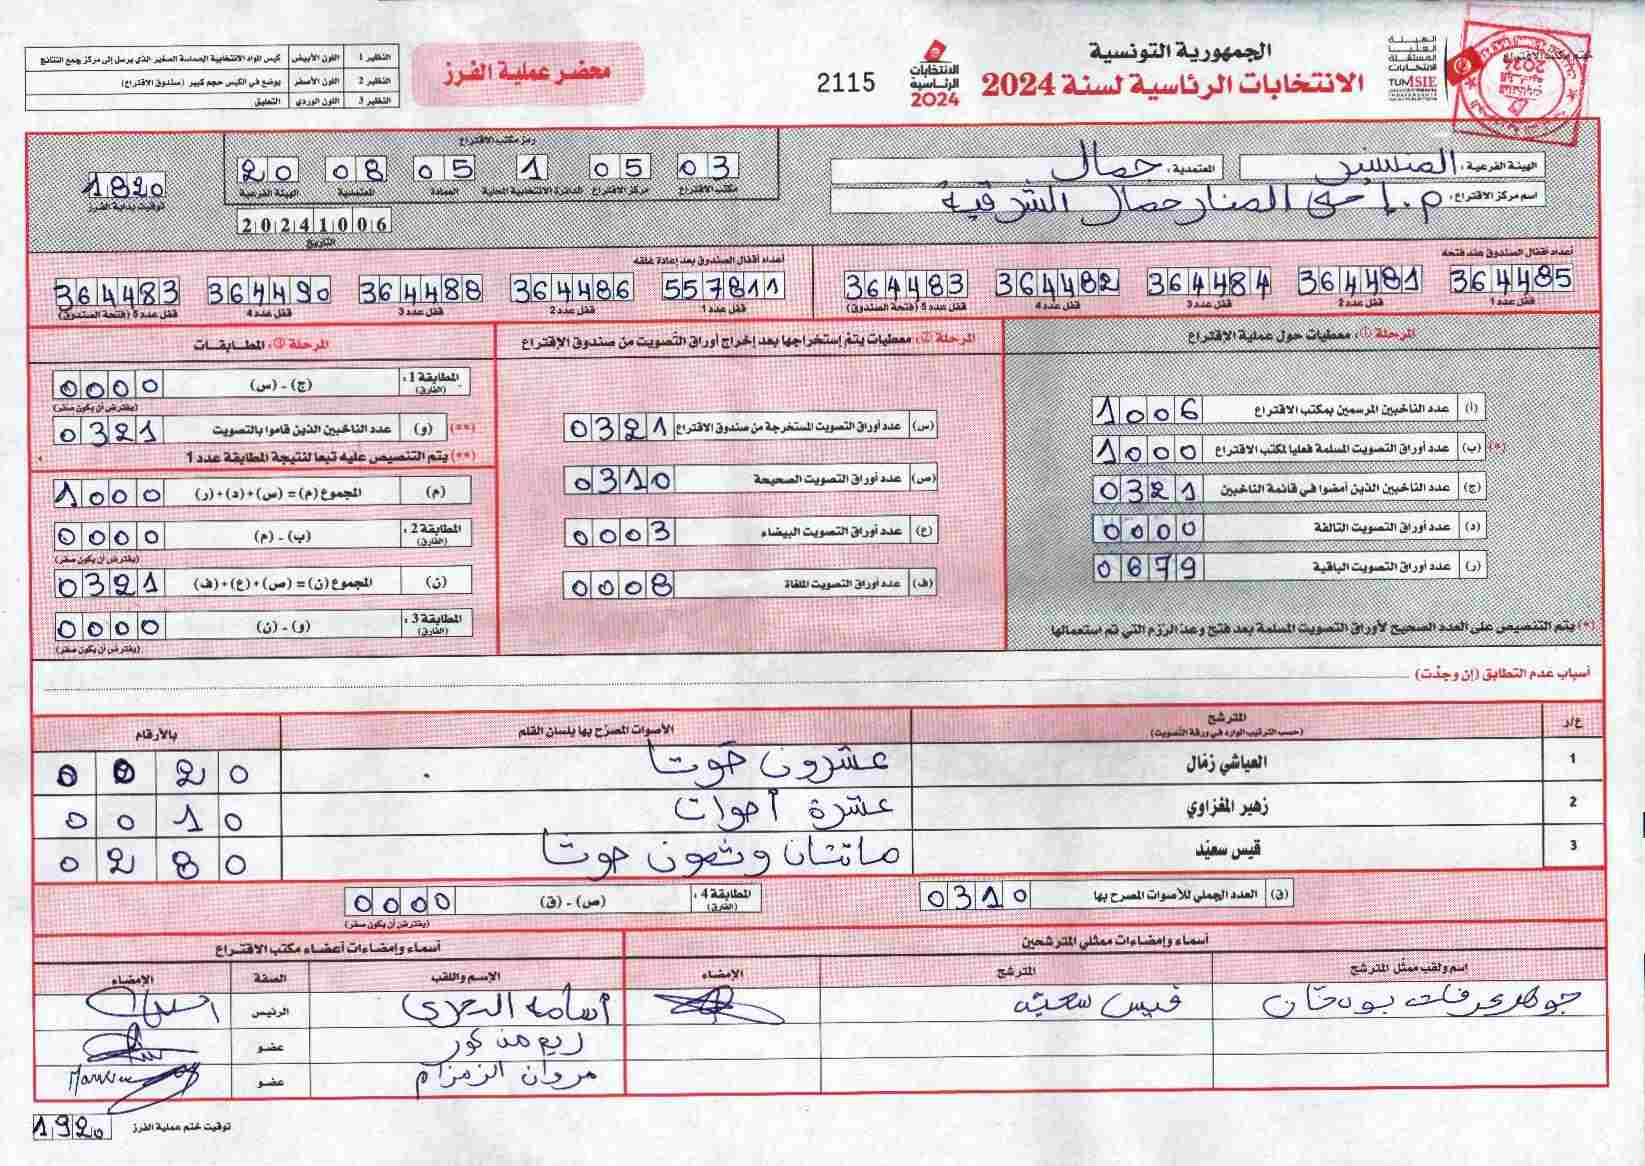 الجمهورية التونسية
الانتخابات الرئاسية لسنة 2024
الهيئة العليا المستقلة للانتخابات
TUNISIE
الانتخابات الرئاسية 2024
2115
محضر عملية الفرز
النظير 1 اللون الأبيض كيس المواد الانتخابية الحساسة الصغير الذي يرسل إلى مركز جمع النتائج
النظير 2 اللون الأصفر يوضع في الكيس حجم كبير (صندوق الاقتراع)
النظير 3 اللون الوردي التعليق
الهيئة الفرعية : المنستير المعتمدية : جمال
اسم مركز الاقتراع : م.إ حي المنار جمال الشرقية
رمز مكتب الاقتراع
20 08 05 1 05 03
الهيئة الفرعية المعتمدية العمادة الدائرة الانتخابية المحلية مركز الاقتراع مكتب الاقتراع
20241006
التاريخ
1820
توقيت بداية الفرز
أعداد أقفال الصندوق عند فتحه
364485 364481 364484 364482 364483
قفل عدد 1 قفل عدد 2 قفل عدد 3 قفل عدد 4 قفل عدد 5 (فتحة الصندوق)
أعداد أقفال الصندوق بعد إعادة غلقه
557811 364486 364488 364490 364483
قفل عدد 1 قفل عدد 2 قفل عدد 3 قفل عدد 4 قفل عدد 5 (فتحة الصندوق)
المرحلة ①: معطيات حول عملية الاقتراع
(أ) عدد الناخبين المرسمين بمكتب الاقتراع 1006
(*) (ب) عدد أوراق التصويت المسلمة فعليا لمكتب الاقتراع 1000
(ج) عدد الناخبين الذين أمضوا في قائمة الناخبين 0321
(د) عدد أوراق التصويت التالفة 0000
(ر) عدد أوراق التصويت الباقية 0679
(*) يتم التنصيص على العدد الصحيح لأوراق التصويت المسلمة بعد فتح وعد الرزم التي تم استعمالها
المرحلة ②: معطيات يتم إستخراجها بعد إخراج أوراق التّصويت من صندوق الإقتراع
(س) عدد أوراق التصويت المستخرجة من صندوق الاقتراع 0321
(ص) عدد أوراق التصويت الصحيحة 0310
(ع) عدد أوراق التصويت البيضاء 0003
(ف) عدد أوراق التصويت الملغاة 0008
المرحلة ③: المطابقات
المطابقة 1 : (الفارق) (ج) - (س) 0000
(يفترض أن يكون صفر)
(**) (و) عدد الناخبين الذين قاموا بالتصويت 0321
(**) يتم التنصيص عليه تبعا لنتيجة المطابقة عدد 1
(م) المجموع (م) = (س) + (د) + (ر) 1000
المطابقة 2 : (الفارق) (ب) - (م) 0000
(يفترض أن يكون صفر)
(ن) المجموع (ن) = (ص) + (ع) + (ف) 0321
المطابقة 3 : (الفارق) (و) - (ن) 0000
(يفترض أن يكون صفر)
أسباب عدم التطابق (إن وجدت)
ع/ر المترشح (حسب الترتيب الوارد في ورقة التصويت) الأصوات المصرّح بها بلسان القلم بالأرقام
1 العياشي زمّال عشرون صوتا 0020
2 زهير المغزاوي عشرة أصوات 0010
3 قيس سعيّد مائتان وثمانون صوتا 0280
(ق) العدد الجملي للأصوات المصرح بها 0310
المطابقة 4 : (الفارق) (ص) - (ق) 0000
(يفترض أن يكون صفر)
أسماء وإمضاءات ممثلي المترشحين
اسم ولقب ممثّل المترشح المترشح الإمضاء
قيس سعيد
أسماء وإمضاءات أعضاء مكتب الاقتراع
الإسم واللقب الصفة الإمضاء
أسامة الرئيس
ريم عضو
مروان عضو
توقيت ختم عملية الفرز 1920